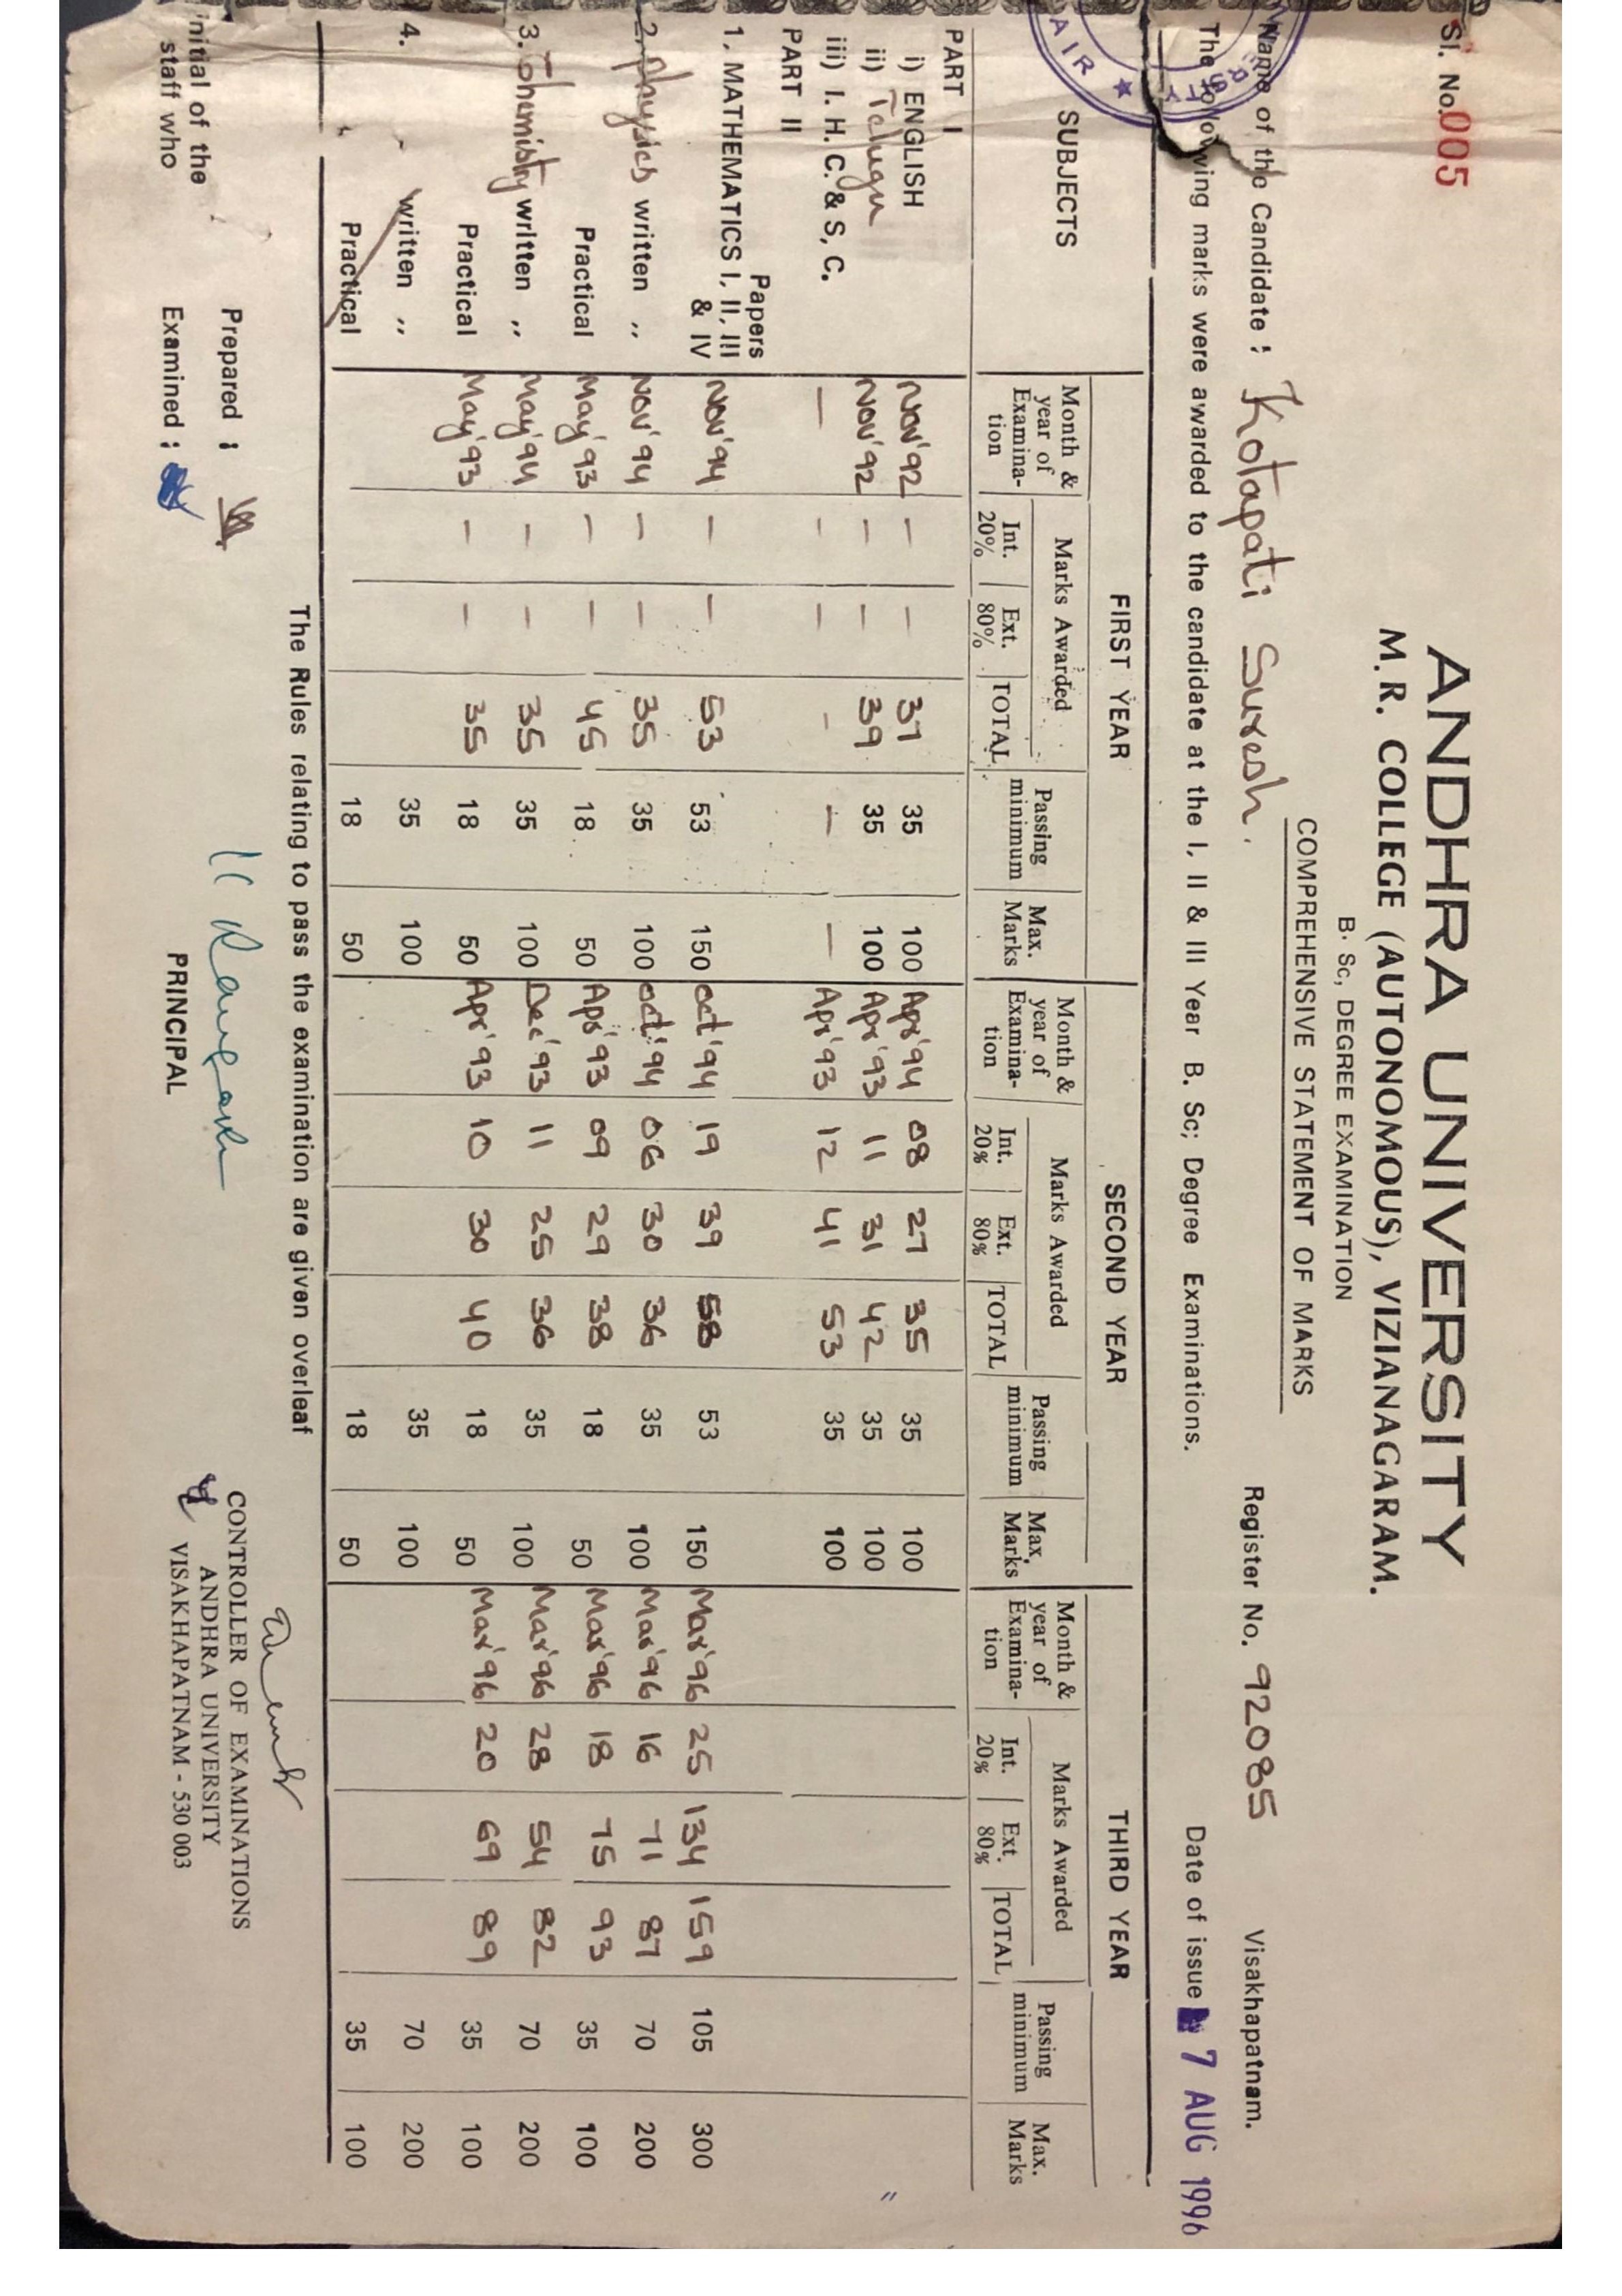 Sl. No. 005
ANDHRA UNIVERSITY
M. R. COLLEGE (AUTONOMOUS), VIZIANAGARAM.
B. Sc, DEGREE EXAMINATION
COMPREHENSIVE STATEMENT OF MARKS
Name of the Candidate : Kotapati Suresh. Register No. 92085 Visakhapatnam.
The following marks were awarded to the candidate at the I, II & III Year B. Sc; Degree Examinations. Date of issue 7 AUG 1996
AIR ★
SUBJECTS FIRST YEAR SECOND YEAR THIRD YEAR
Month & year of Examina-tion Marks Awarded Int. 20% Ext. 80% TOTAL Passing minimum Max. Marks Month & year of Examina-tion Marks Awarded Int. 20% Ext. 80% TOTAL Passing minimum Max. Marks Month & year of Examina-tion Marks Awarded Int. 20% Ext. 80% TOTAL Passing minimum Max. Marks
PART I
i) ENGLISH Nov'92 — — 37 35 100 Apr'94 08 27 35 35 100
ii) Telugu Nov'92 — — 39 35 100 Apr'93 11 31 42 35 100
iii) I. H. C. & S. C. — — — - — — Apr'93 12 41 53 35 100
PART II
Papers
1. MATHEMATICS I, II, III & IV Nov'94 — — 53 53 150 Oct'94 19 39 58 53 150 Mar'96 25 134 159 105 300
2. Physics written ,, Nov'94 — — 35 35 100 Oct'94 06 30 36 35 100 Mar'96 16 71 87 70 200
Practical May'93 — — 45 18 50 Apr'93 09 29 38 18 50 Mar'96 18 75 93 35 100
3. Chemistry written ,, May'94 — — 35 35 100 Dec'93 11 25 36 35 100 Mar'96 28 54 82 70 200
Practical May'93 — — 35 18 50 Apr'93 10 30 40 18 50 Mar'96 20 69 89 35 100
4. written ,, 35 100 35 100 70 200
Practical 18 50 18 50 35 100
The Rules relating to pass the examination are given overleaf
Initial of the staff who
Prepared :
Examined :
PRINCIPAL
CONTROLLER OF EXAMINATIONS
ANDHRA UNIVERSITY
VISAKHAPATNAM - 530 003